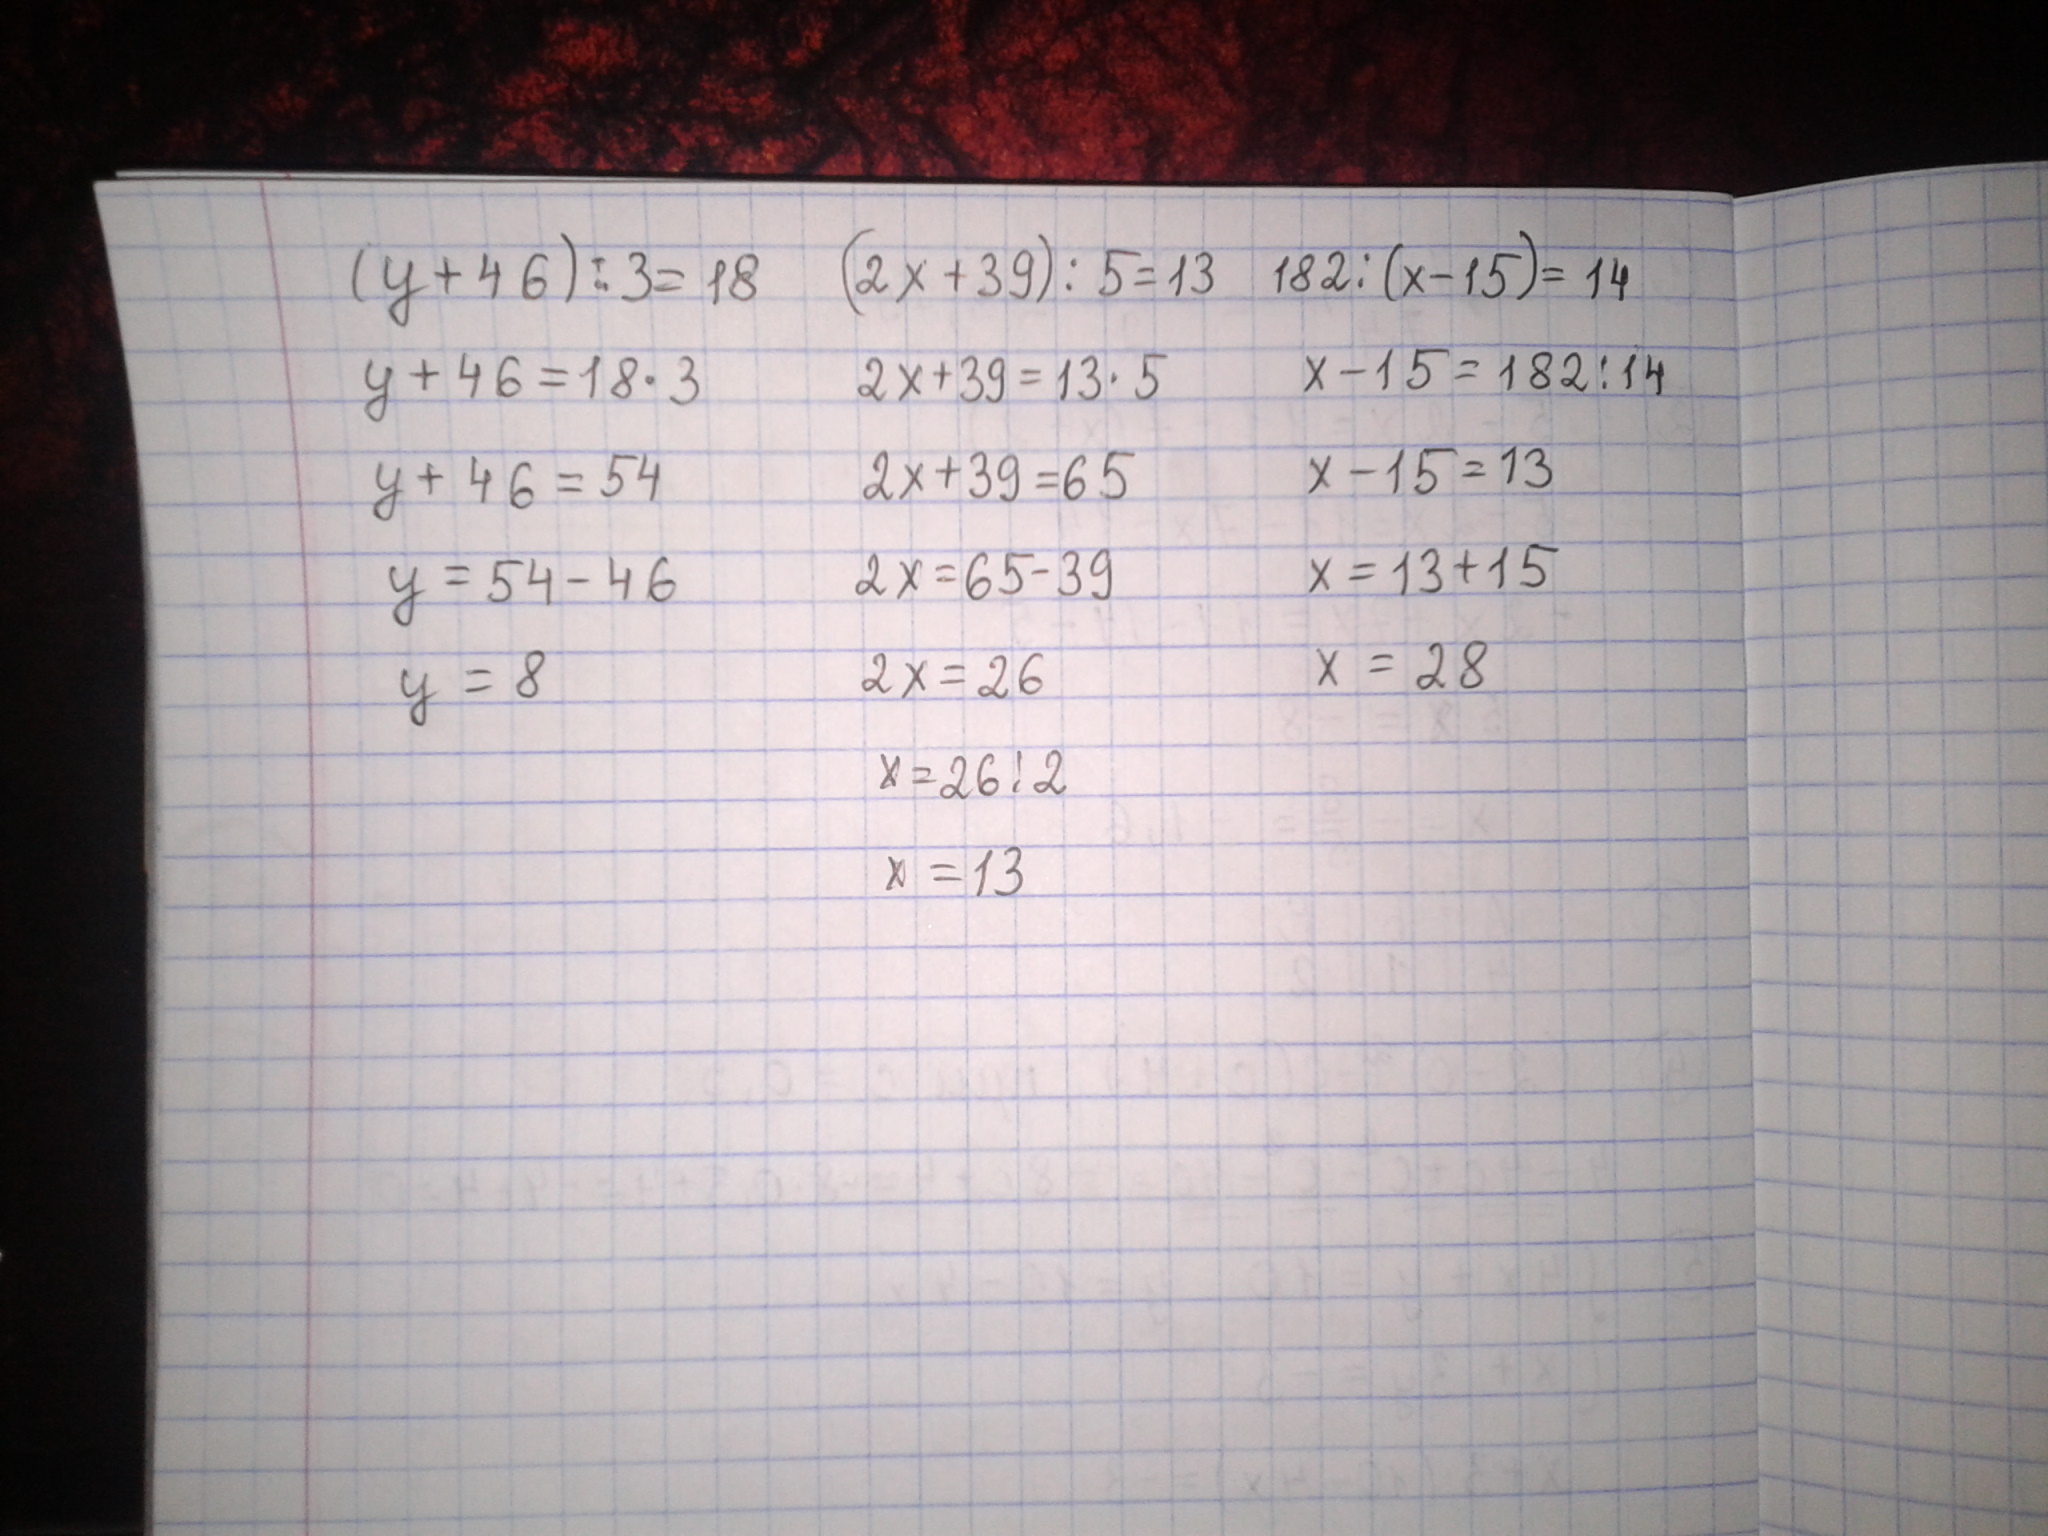 (y+46):3=18
y+46=18·3
y+46=54
y=54-46
y=8
(2x+39):5=13
2x+39=13·5
2x+39=65
2x=65-39
2x=26
x=26:2
x=13
182:(x-15)=14
x-15=182:14
x-15=13
x=13+15
x=28